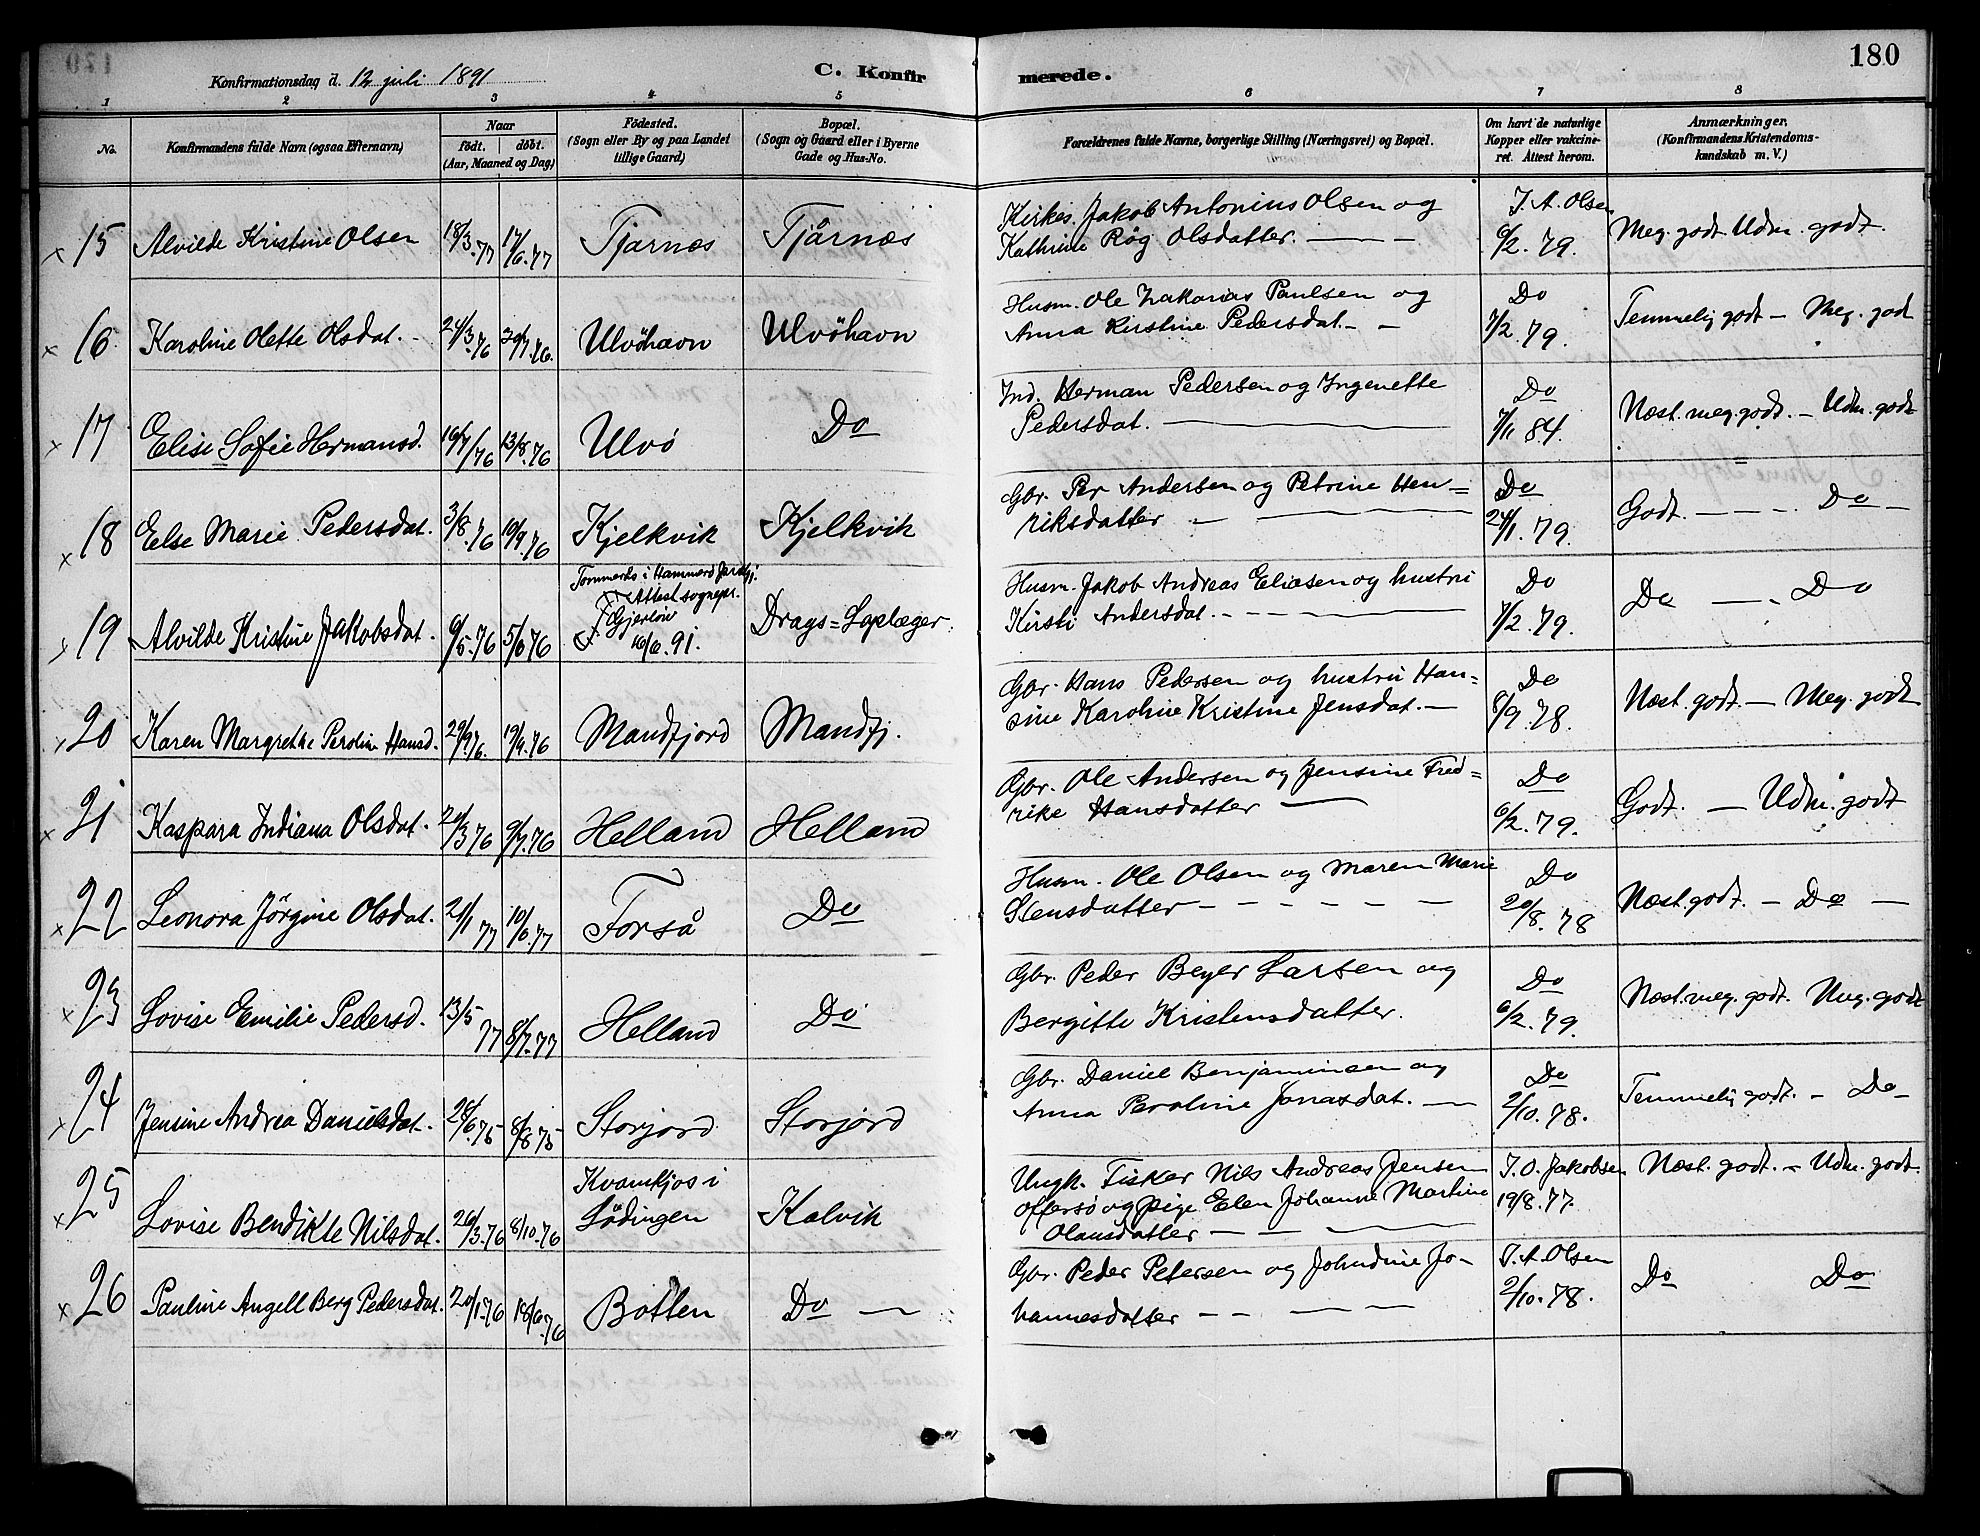 180
Konfirmationsdag d. 12 juli 1891
C. Konfirmerede.
1 2 3 4 5 6 7 8
No.
Konfirmandens fulde Navn (ogsaa Efternavn)
Naar
födt. döbt.
(Aar, Maaned og Dag)
Födested.
(Sogn eller By og paa Landet
tillige Gaard)
Bopæl.
(Sogn og Gaard eller i Byerne
Gade og Hus-No.
Forældrenes fulde Navne, borgerlige Stilling (Næringsvei) og Bopæl.
Om havt de naturlige
Kopper eller vakcine-
ret. Attest herom.
Anmærkninger.
(Konfirmandens Kristendoms-
kundskab m. V.)
x 15 Alvilde Kristine Olsen 18/3.77 17/6.77 Tjarnæs Tjårnæs Kirkes. Jakob Antonius Olsen og J. A. Olsen Meg. godt Udm. godt.
Kathrine Røg Olsdatter. 6/2. 79.
x 16 Karoline Olette Olsdat. 24/3.76 30/7.76. Ulvöhavn Ulvöhavn Husm. Ole Zakarias Paulsen og Do Temmelig godt - Meg. godt
Anna Kirstine Pedersdat. 7/2. 79.
x 17 Elise Sofie Hermansd. 16/7/76 13/8.76 Ulvö Do Ind. Herman Pedersen og Ingenette Do Næst. meg. godt. - Udm. godt
Pedersdat. 7/11 84.
x 18 Else Marie Pedersdat. 3/8.76 19/9.76 Kjelkvik Kjelkvik Gbr. Per Andersen og Petrine Hen= Do Godt. - Do
riksdatter 24/1. 79.
x 19 Alvilde Kristine Jakobsdat. 6/5.76 5/6 76 i Hammerö
Attest sognepr.
Gjerlöv
16/6.91. Drags= Husm. Jakob Andreas Eliasen og hustru Do Do - Do
Kirsti Andersdat. 7/2. 79.
x 20 Karen Margrethe Peroline Hansd. 19/9.76 Mandfjord Mandfj. Gbr. Hans Pedersen og hustru Han= Do Næst. godt. - Meg. godt
sine Karoline Kristine Jensdat. 6/9. 78.
x 21 Kaspara Indiana Olsdat. 20/3 76 9/7.76 Helland Helland Gbr. Ole Andersen og Jensine Fred= Do Godt. - Udm. godt
rike Hansdatter 6/2. 79.
x 22 Leonora Jörgine Olsdat. 21/1 77 10/6.77 Forså Do Husm. Ole Olsen og Maren Marie Do Næst. godt. - Do
Stensdatter 20/8. 78
x 23 Lovise Emilie Pedersd. 13/5 77 8/7.77 Helland Do Gbr. Peder Beyer Larsen og Do Næst. meg. godt. Meg. godt
Bergitte Kristensdatter. 6/2. 79.
x 24 Jensine Andrea Danielsdat. 28/6.75 8/8 75 Storjord Storjord Gbr. Daniel Benjaminsen og Do Temmelig godt. - Do
Anna Peroline Jonasdat. 2/10. 78.
x 25 Lovise Bendikte Nilsdat. 26/3.76 8/10.76 Kvannkjos i
Lödingen Kalvik Ungk. Fisker Nils Andreas Jensen J. O. Jakobsen Næst. godt. - Udm. godt.
Offersö og pige Elen Johanne Martine 19/8. 77.
Olausdatter
x 26 Pauline Angell Berg Pedersdat. 20/1.76 18/6.76 Botten Do Gbr. Peder Petersen og Johndine Jo- J. A. Olsen Do Do
hannesdatter 2/10. 78.